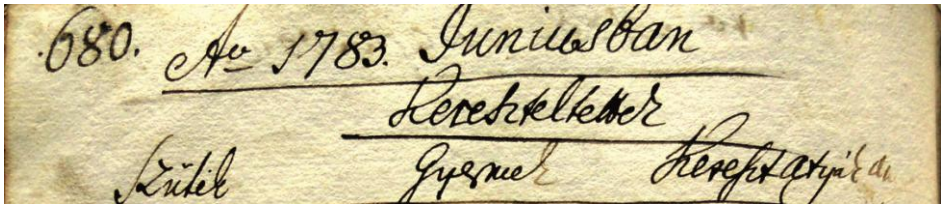 680. Ao 1783. Juniusban
Kereszteltettek
Szülék Gyermek Kereszt Atyák